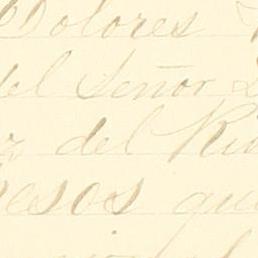 Dolores
del Señor
del Rio
pesos que